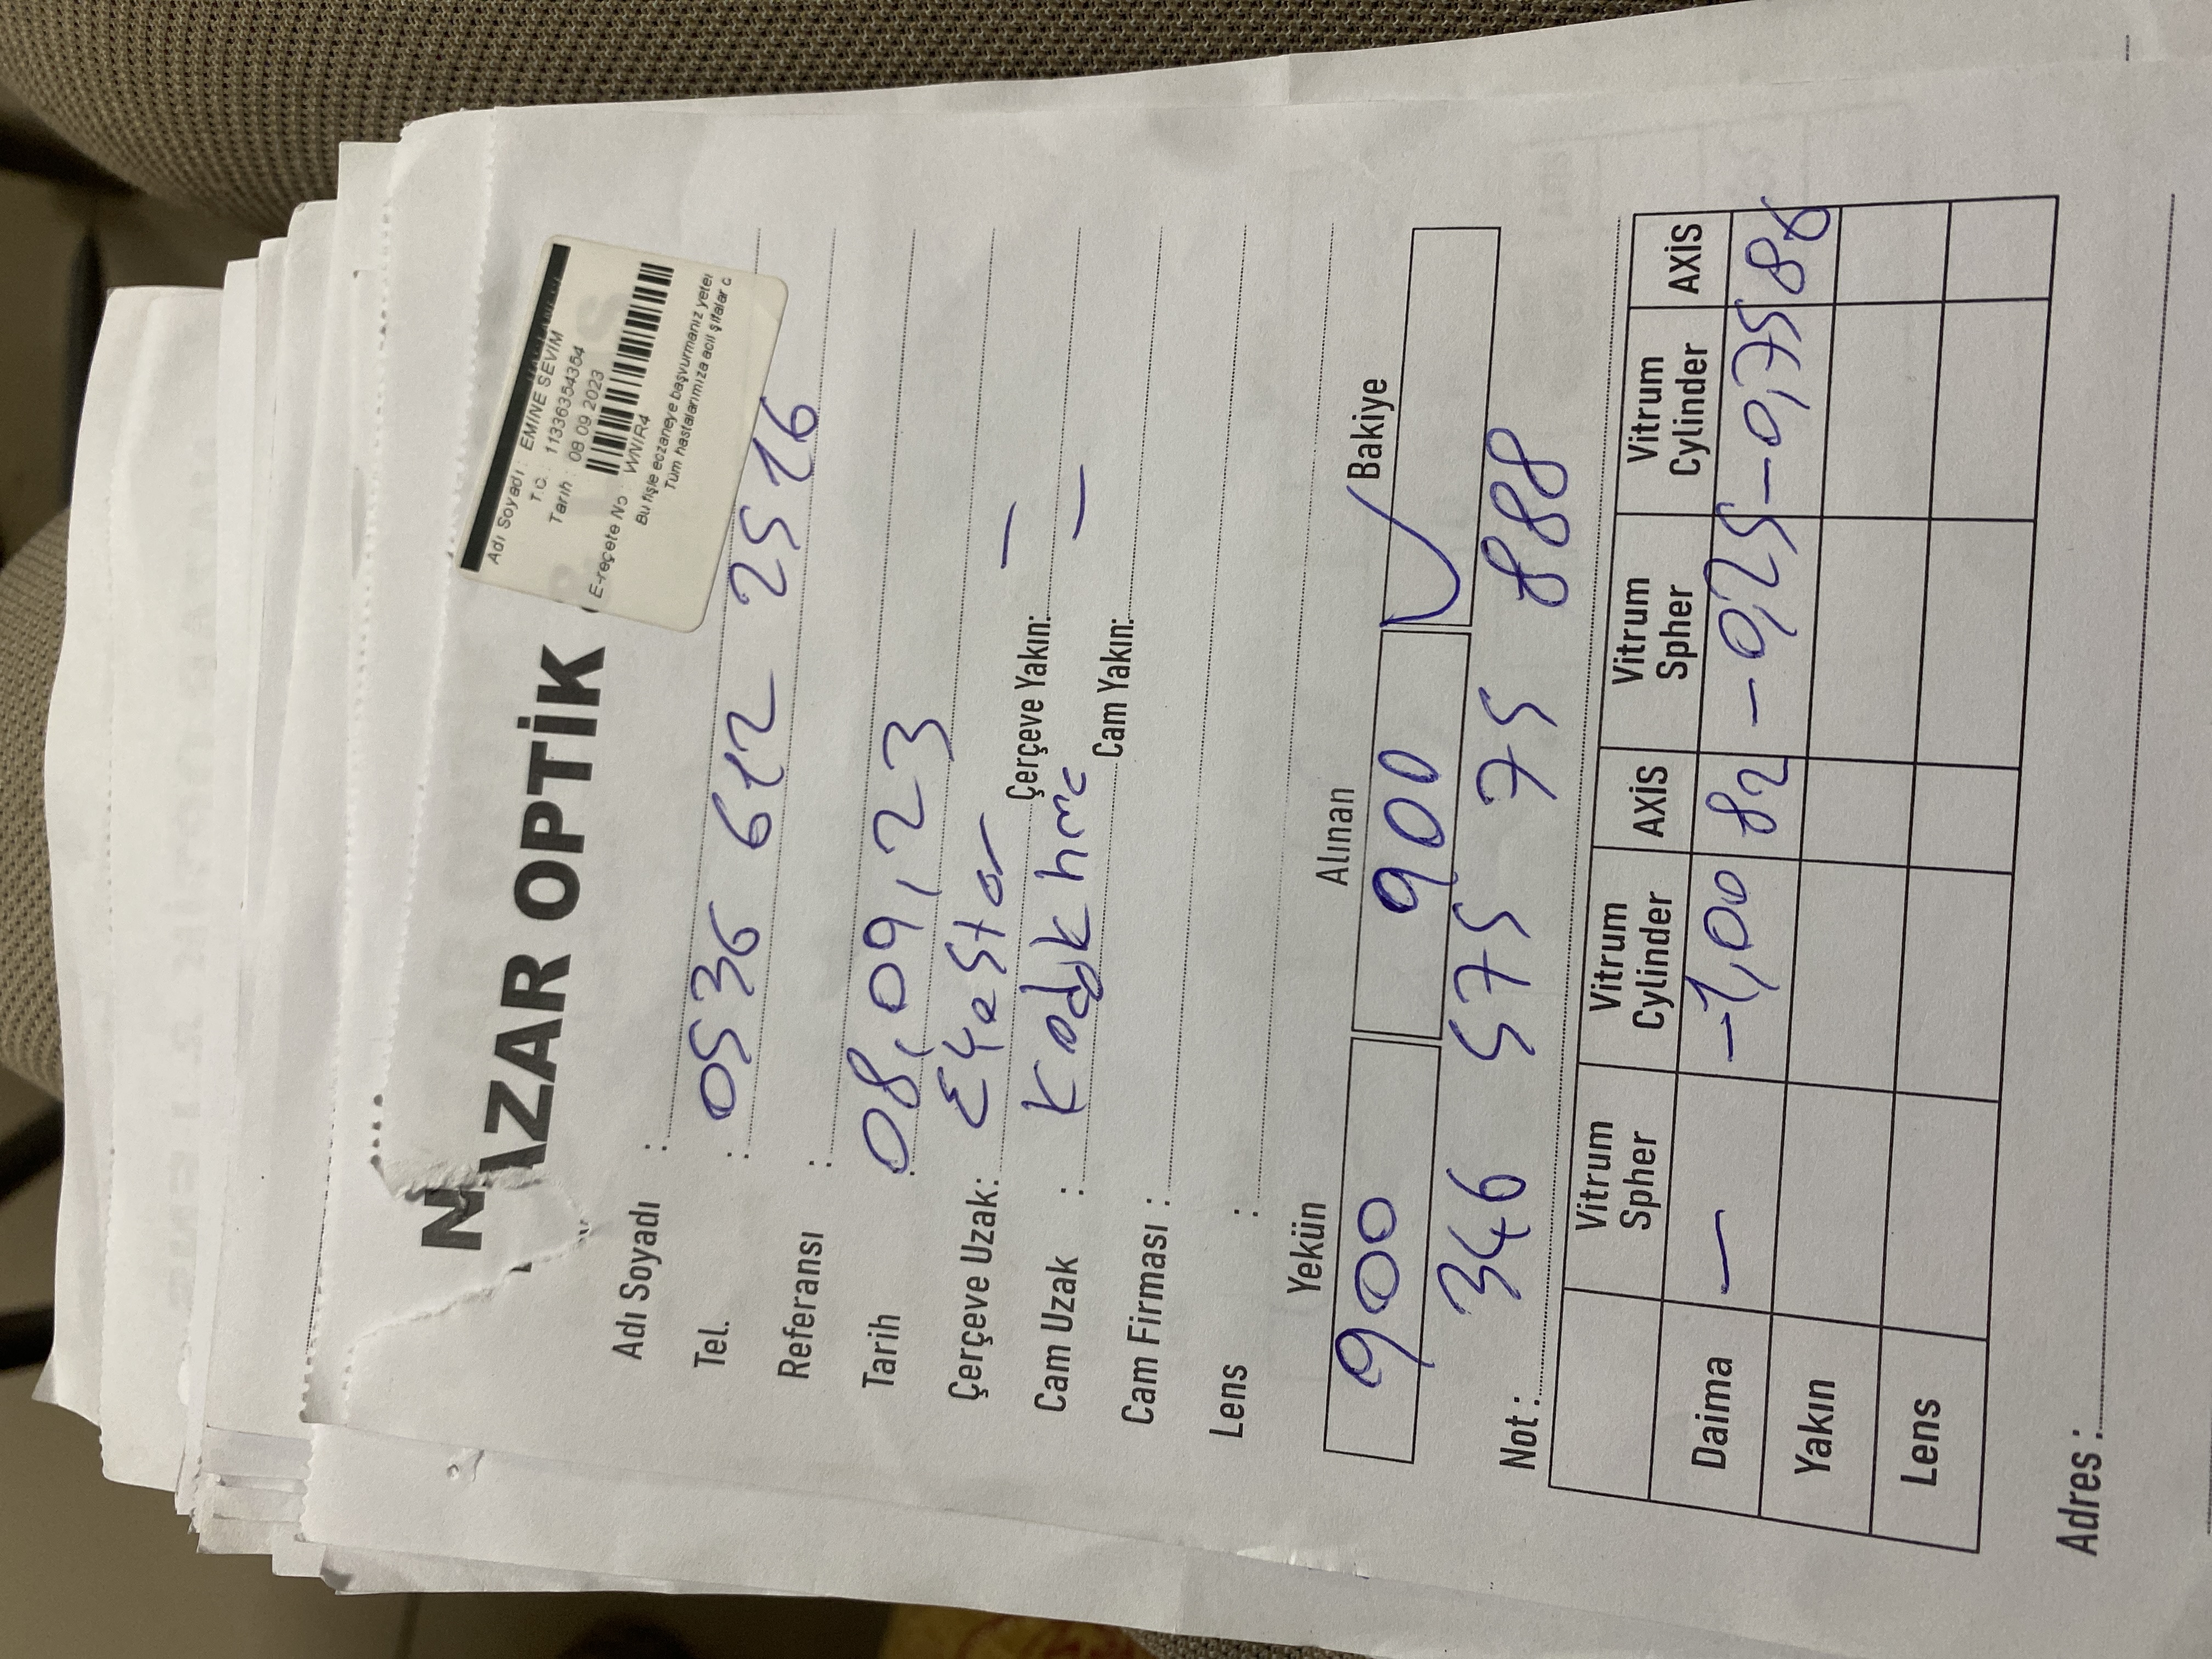 NAZAR OPTİK & LENS
Adı Soyadı : EMİNE SEVİM
T.C. : 11336354354
Tarih : 08 09 2023
E-reçete No : WNIR4
Bu fişle eczaneye başvurmanız yeter
Tüm hastalarımıza acil şifalar d
Adı Soyadı :
Tel. : 0536 612 2516
Referansı :
Tarih : 08,09,23
Çerçeve Uzak: Eyestar Çerçeve Yakın: —
Cam Uzak : Kodak hmc Cam Yakın: —
Cam Firması :
Lens :
Yekün Alınan Bakiye
900 900 ✓
Not : 346 575 75 888
Vitrum Spher Vitrum Cylinder AXİS Vitrum Spher Vitrum Cylinder AXİS
Daima — -1,00 82 -0,25 -0,75 86
Yakın
Lens
Adres :